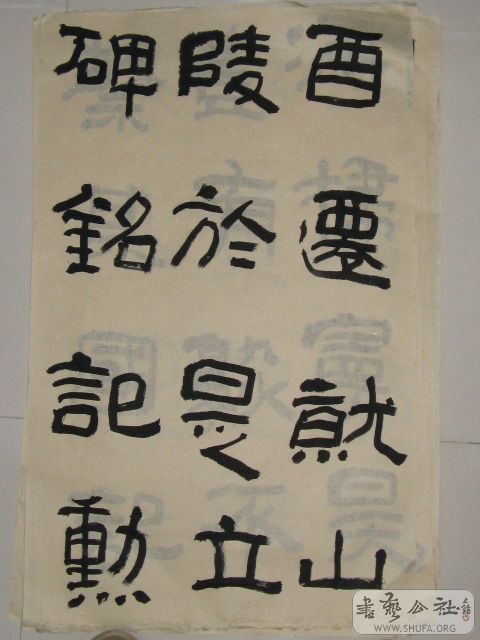 酉遷就山
陵於是立
碑銘記勳
書藝公社
WWW.SHUFA.ORG